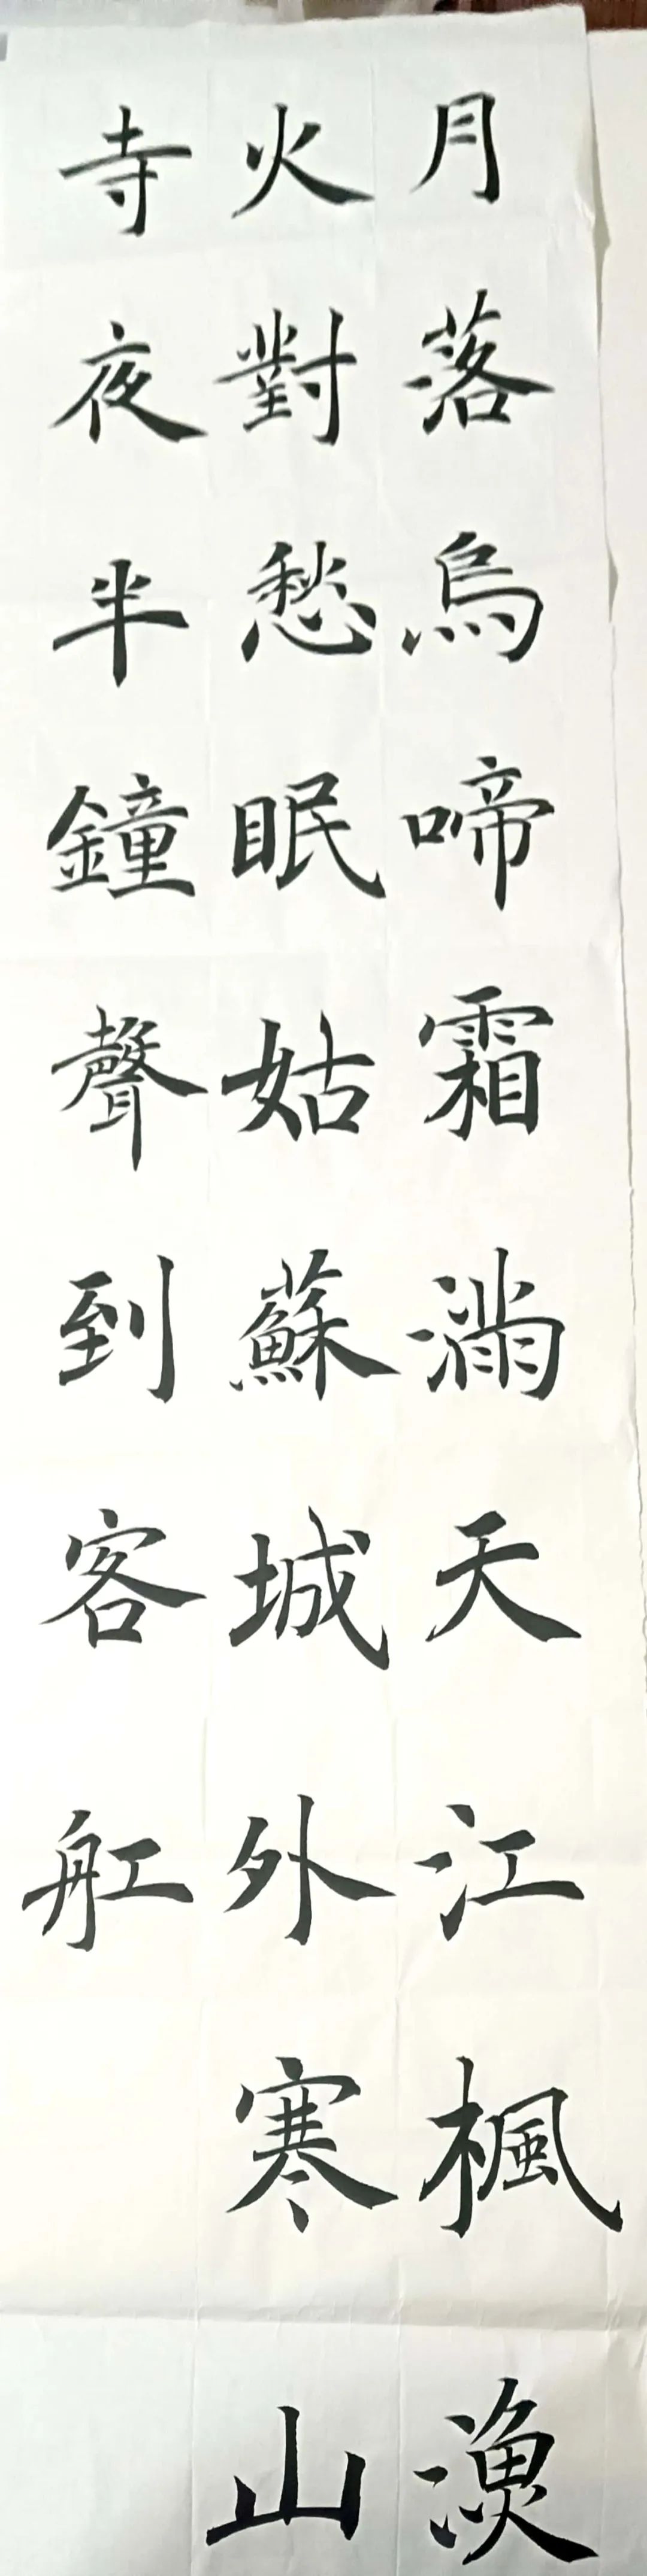 月落烏啼霜滿天江楓漁
火對愁眠姑蘇城外寒山
寺夜半鐘聲到客舡